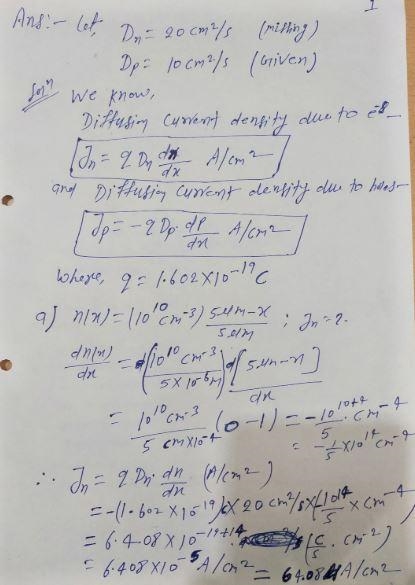 1
Ans:- Let, Dn = 20 cm²/s (missing)
Dp = 10 cm²/s (Given)
Solⁿ We know,
Diffusion Current density due to e⁻s -
Jn = q Dn dn/dx A/cm²
and Diffusion Current density due to holes -
Jp = -q Dp. dp/dx A/cm²
Where, q = 1.602 X 10⁻¹⁹ C
a) n(x) = (10¹⁰ cm⁻³) 5μm-x / 5μm ; Jn = ?
dn(x)/dx = (10¹⁰ cm⁻³ / 5X10⁻⁶m) d[5μm-x]/dx
= 10¹⁰ cm⁻³ / 5 cm x10⁻⁴ (0-1) = -10¹⁰⁺⁴/5 . cm⁻⁴
= -1/5 X10¹⁴ cm⁻⁴
∴ Jn = q Dn. dn/dx (A/cm²)
= -(1.602 X 10⁻¹⁹)C X 20 cm²/s X (10¹⁴/5 X cm⁻⁴)
= 6.408 X 10⁻¹⁹⁺¹⁴ (C/s . cm⁻²)
= 6.408 X 10⁻⁵ A/cm² = 64.08 μA/cm²